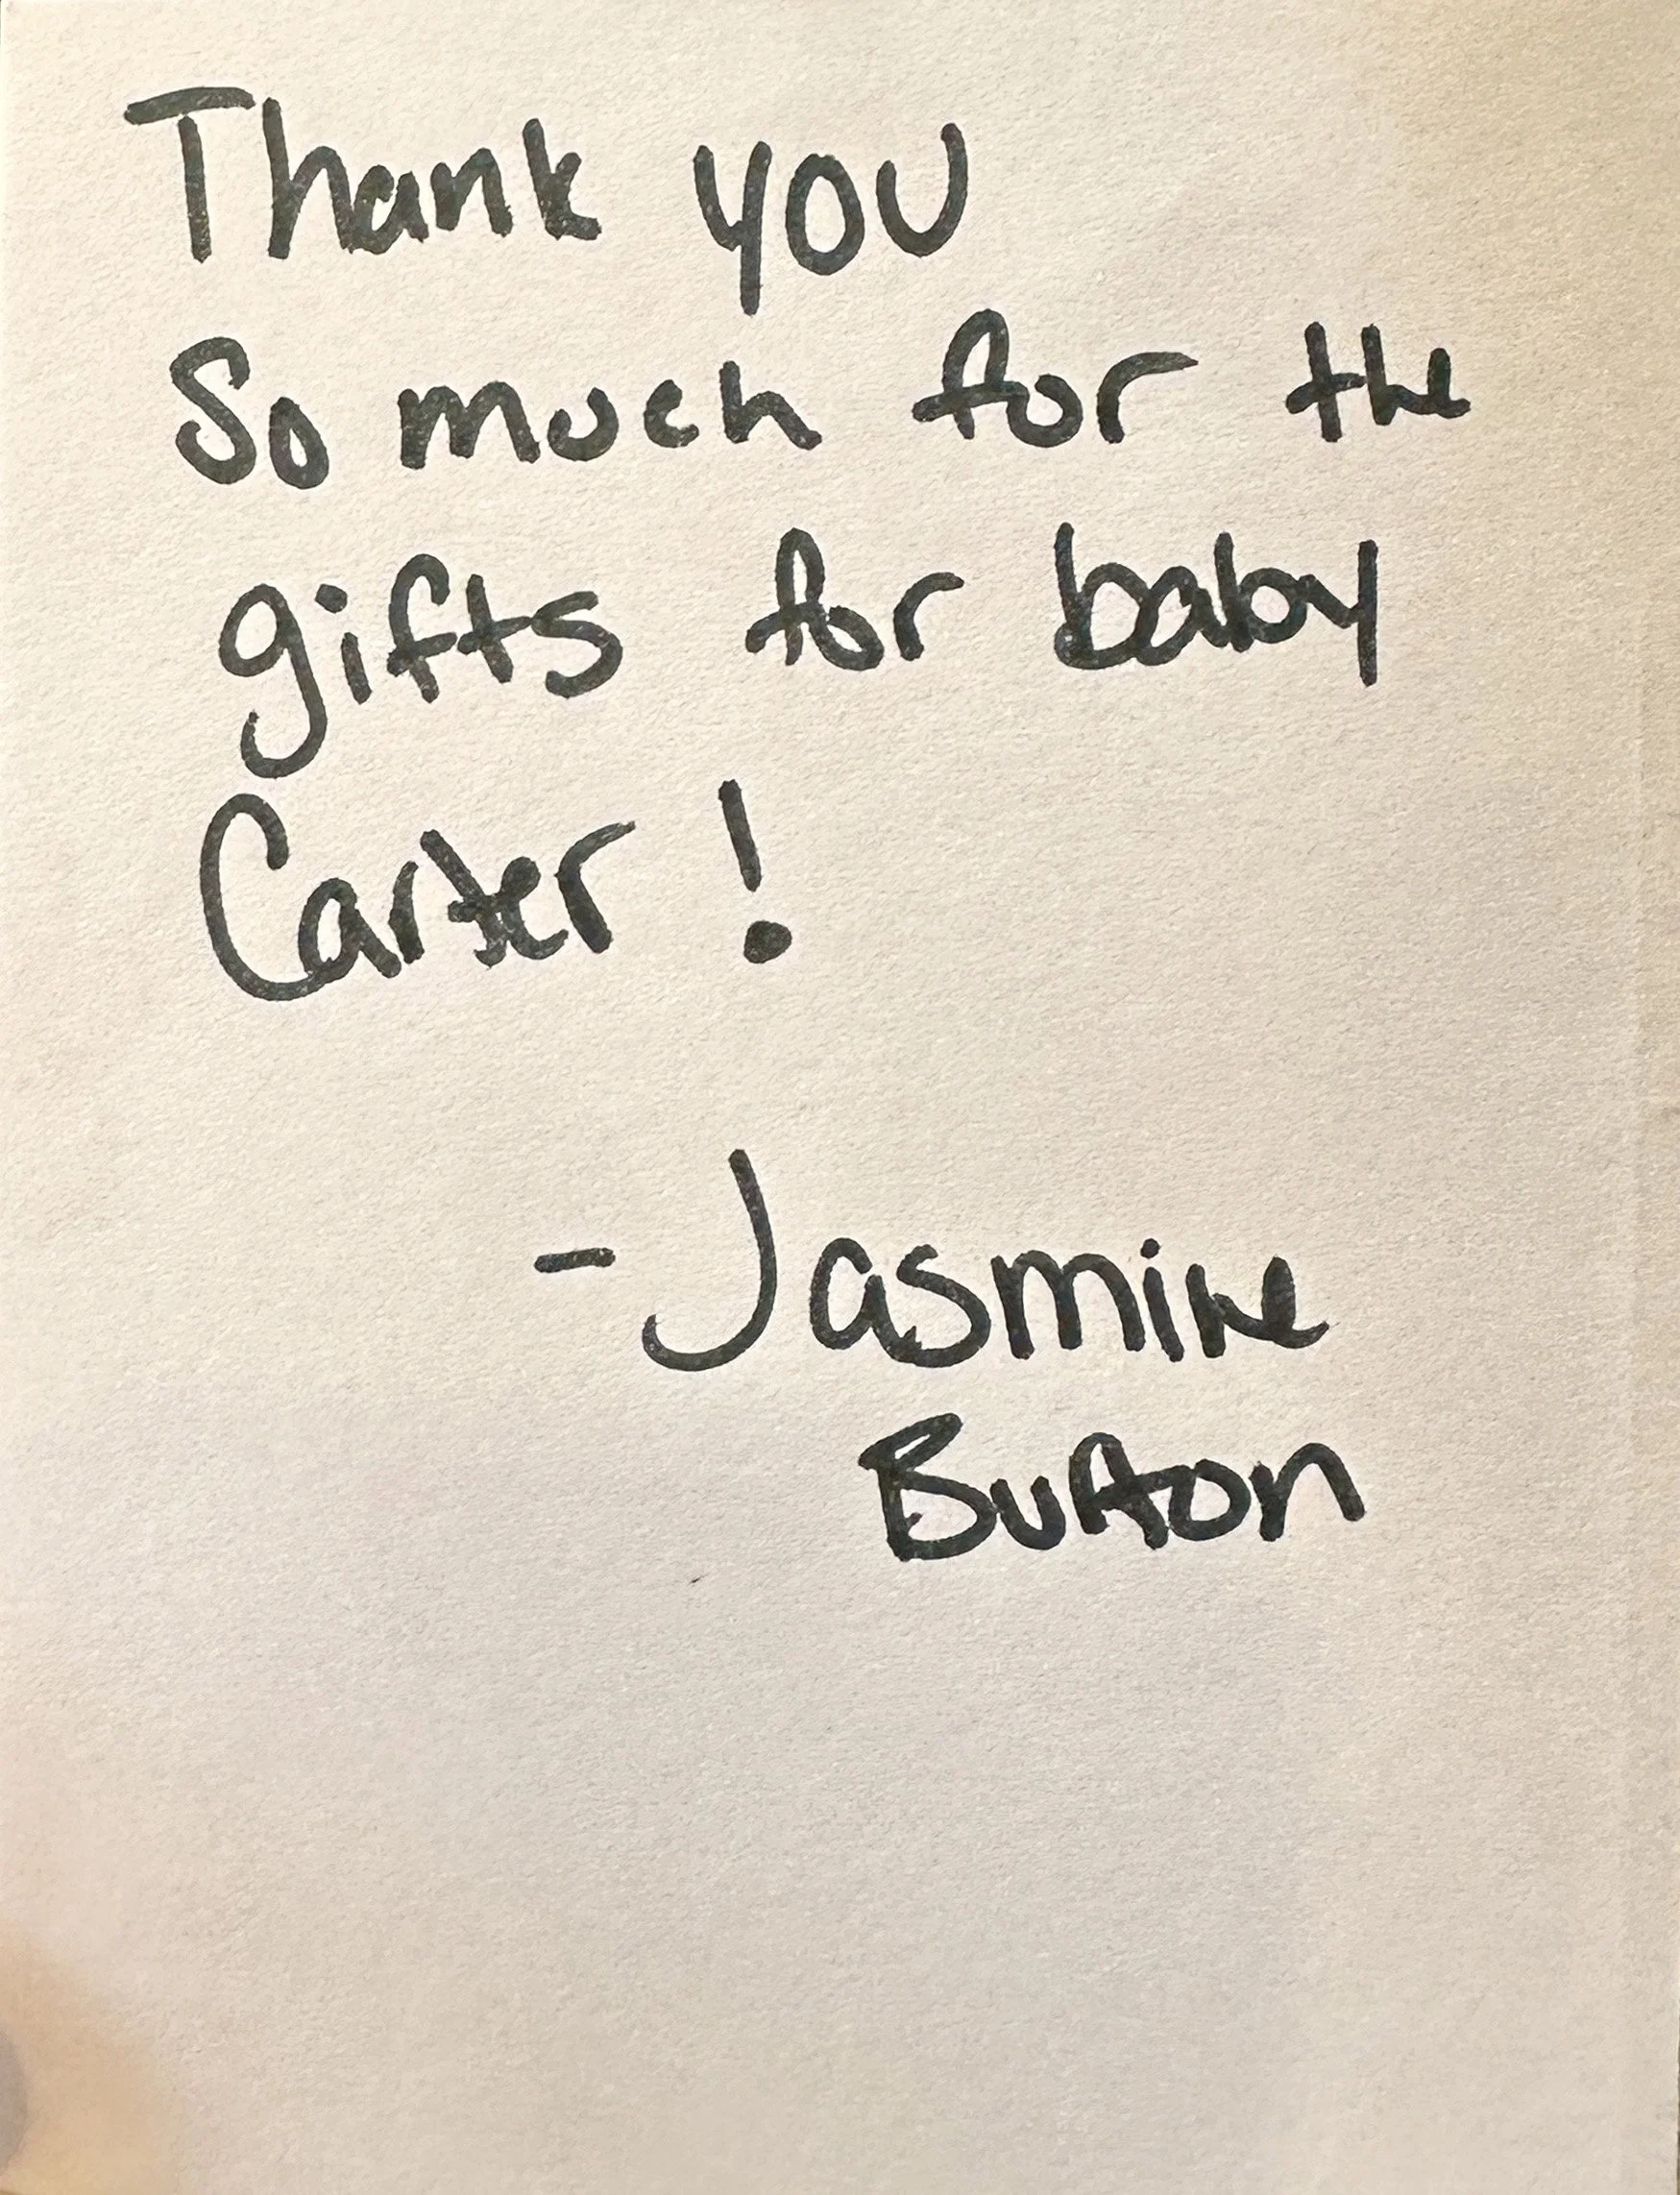 Thank you
So much for the
gifts for baby
Carter!
-Jasmine
Burton